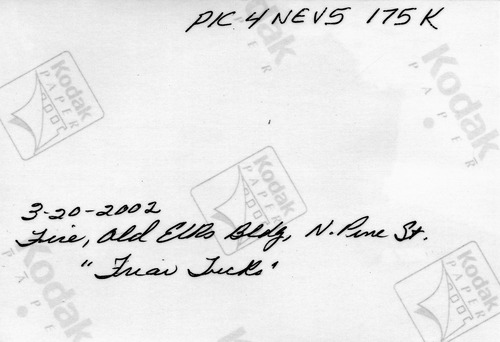 PIC 4 NEV5 175K
Kodak
PAPER
Kodak
Kodak
PAPER
3-20-2002
Fire, Old Elks Bldg, N. Pine St.
"Friar Tucks"
Kodak
PAPER
Kodak
PAPER